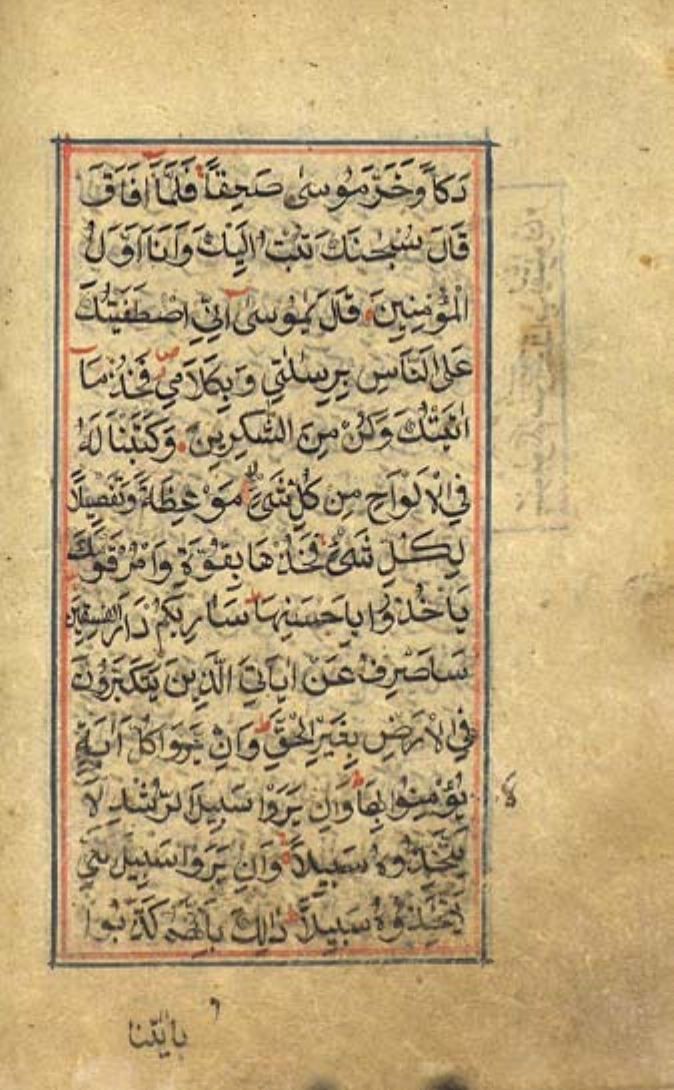 دَكًّا وَخَرَّ مُوسٰى صَعِقًا فَلَمَّا اَفَاقَ
قَالَ سُبْحٰنَكَ تُبْتُ اِلَيْكَ وَاَنَا اَوَّلُ
الْمُؤْمِنِينَ قَالَ يٰمُوسٰى اِنِّى اصْطَفَيْتُكَ
عَلَى النَّاسِ بِرِسٰلٰتِى وَبِكَلَامِى فَخُذْ مَا
اٰتَيْتُكَ وَكُنْ مِنَ الشّٰكِرِينَ وَكَتَبْنَا لَهُ
فِى الْاَلْوَاحِ مِن كُلِّ شَىْءٍ مَوْعِظَةً وَتَفْصِيلًا
لِكُلِّ شَىْءٍ فَخُذْهَا بِقُوَّةٍ وَاْمُرْ قَوْمَكَ
يَاْخُذُوا بِاَحْسَنِهَا سَاُورِيكُمْ دَارَ الْفٰسِقِينَ
سَاَصْرِفُ عَنْ اٰيَاتِىَ الَّذِينَ يَتَكَبَّرُونَ
فِى الْاَرْضِ بِغَيْرِ الْحَقِّ وَاِنْ يَرَوْا كُلَّ اٰيَةٍ
لَا يُؤْمِنُوا بِهَا وَاِنْ يَرَوْا سَبِيلَ الرُّشْدِ لَا
يَتَّخِذُوهُ سَبِيلًا وَاِنْ يَرَوْا سَبِيلَ الْغَىِّ
يَتَّخِذُوهُ سَبِيلًا ذٰلِكَ بِاَنَّهُمْ كَذَّبُوا
بِاٰيٰتِنَا